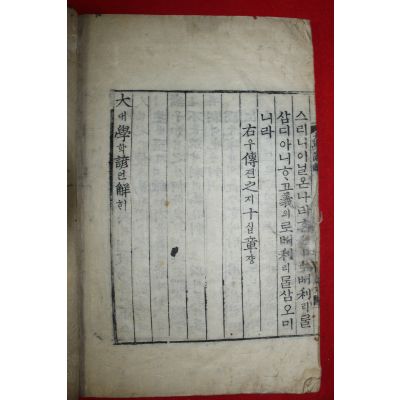 스리니이닐온나라흔ᄡᅥ利리를
삼디아니ᄒᆞ고義의로ᄡᅥ利리를삼오미
니라
右우傳젼之지十십章쟝
大대學학諺언解ᄒᆡ